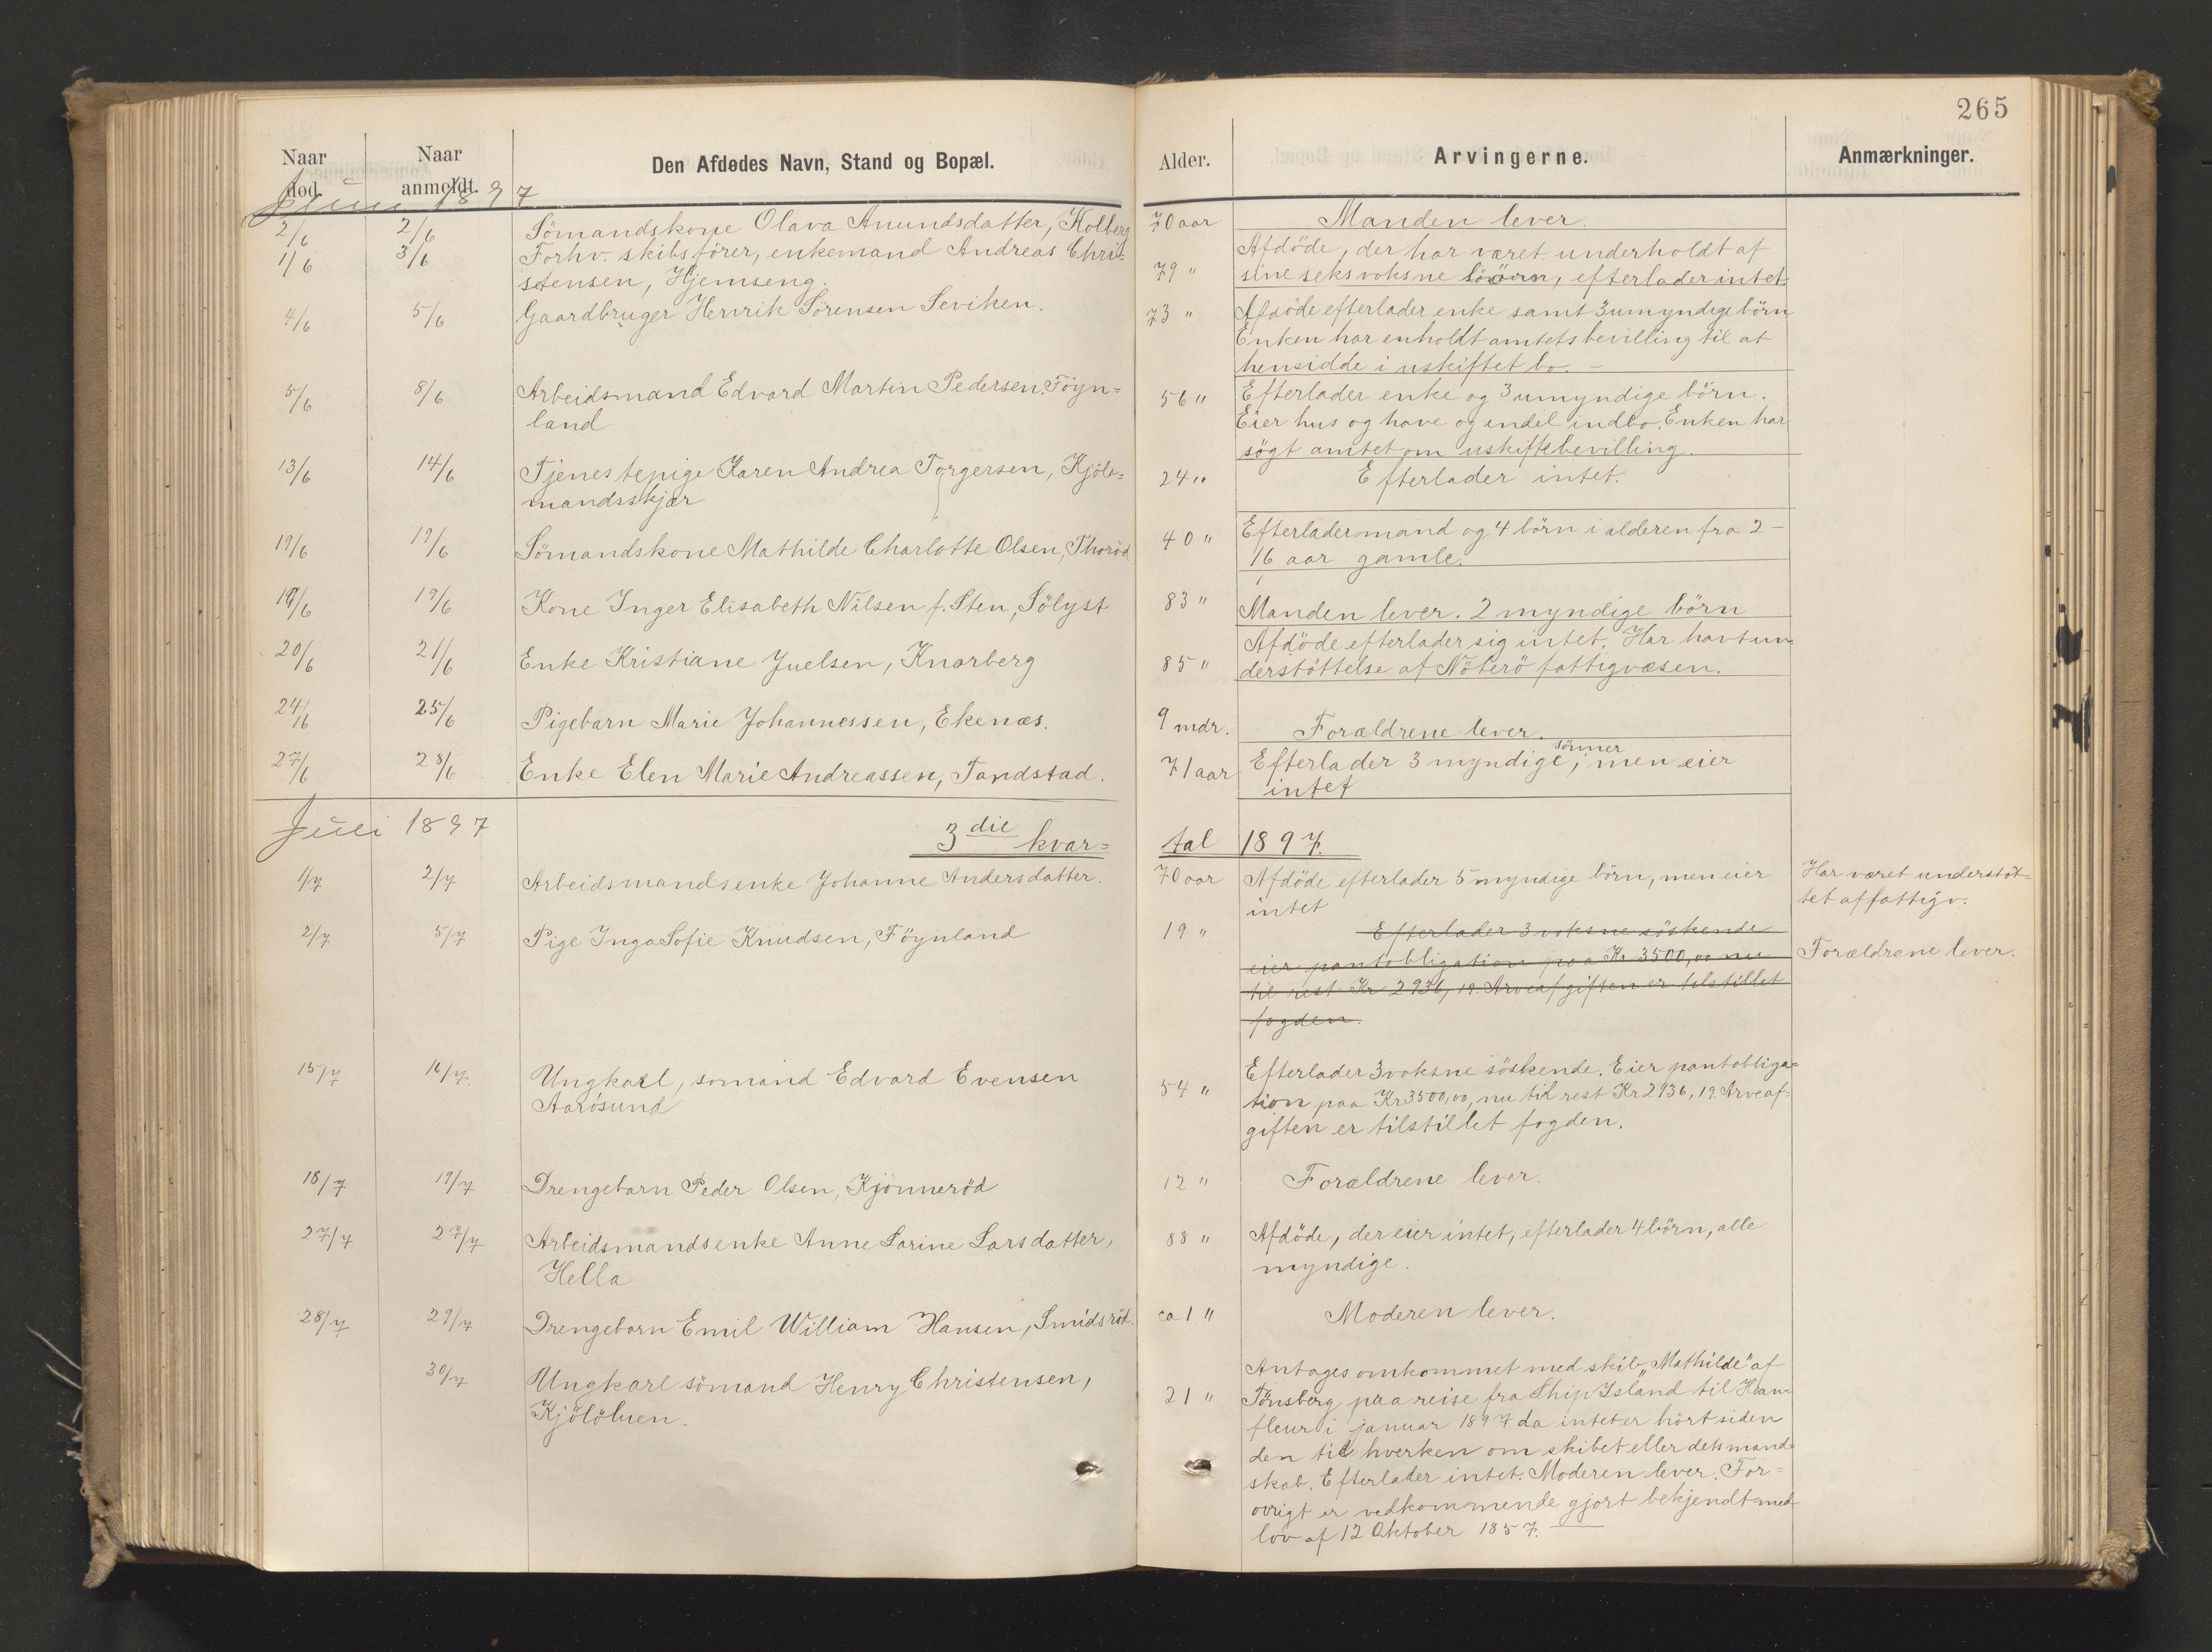 265
Naar død. Naar anmeldt. Den Afdødes Navn, Stand og Bopæl. Alder. Arvingerne. Anmærkninger.
Juni 1897
2/6 2/6 Sömandskone Olava Anundsdatter, Kolberg 70 aar Manden lever.
1/6 3/6 Forhv. skibsförer, enkemand Andreas Chri- Afdöde, der har været underholdt af
stensen, Hjemseng. 79 " sine seks voksne börn, efterlader intet.
4/6 5/6 Gaardbruger Henrik Sörensen Seviken. 73 " Afdöde efterlader enke samt 3 umyndige börn
Enken har enholdt amtets bevilling til at
hensidde i uskiftet bo. –
5/6 8/6 Arbeidsmand Edvard Martin Pedersen, Föyn= 56 " Efterlader enke og 3 umyndige börn.
land Eier hus og have og endel indbo. Enken har
sögt amtet om uskiftebevilling.
13/6 14/6 Tjenestepige Karen Andrea Torgersen, Kjöl=
mandsskjær 24 " Efterlader intet.
19/6 19/6 Sömandskone Mathilde Charlotte Olsen, Thoröd 40 " Efterlader mand og 4 börn i alderen fra 2 –
16 aar gamle.
19/6 19/6 Kone Inger Elisabeth Nilsen f. Sten, Sölyst 83 " Manden lever. 2 myndige börn
20/6 21/6 Enke Kristiane Juelsen, Knarberg 85 " Afdöde efterlader sig intet. Har havt un-
derstöttelse af Nöterö fattigvæsen.
24/6 25/6 Pigebarn Marie Johannessen, Ekenæs. 9 mdr. Forældrene lever.
27/6 28/6 Enke Elen Marie Andreassen, Tandstad. 71 aar Efterlader 3 myndige sönner, men eier
intet
Juli 1897 3die kvar= tal 1897.
1/7 2/7 Arbeidsmandsenke Johanne Andersdatter. 70 aar Afdöde efterlader 5 myndige börn, men eier Har været understöt=
intet tet af fattigv.
2/7 5/7 Pige Inga Sofie Knudsen, Föynland 19 " Efterlader 3 voksne söskende
eier pantobligation paa Kr 3500,00 nu Forældrene lever.
til rest Kr 2936,19. Arveafgiften er tilstillet
fogden.
15/7 16/7 Ungkarl, somand Edvard Evensen 54 " Efterlader 3 voksne söskende. Eier pantobliga=
Aarösund tion paa Kr 3500,00, nu til rest Kr 2936,19. Arveaf=
giften er tilstillet fogden.
18/7 19/7 Drengebarn Peder Olsen, Kjönneröd 12 " Forældrene lever.
27/7 27/7 Arbeidsmandsenke Anne Sarine Larsdatter, 88 " Afdöde, der eier intet, efterlader 4 börn, alle
Hella myndige.
28/7 29/7 Drengebarn Emil William Hansen, Smidsröd. ca 1 " Moderen lever.
30/7 Ungkarl sömand Henry Christensen, 21 " Antages omkommet med skib „Mathilde" af
Tönsberg paa reise fra Ship Island til Hon-
fleur i januar 1897 da intet er hört siden
den tid hverken om skibet eller dets mand=
skab. Efterlader intet. Moderen lever. For=
övrigt er vedkommende gjort bekjendt med
lov af 12 Oktober 1857. —